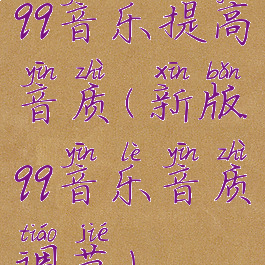 99音乐提高
yīn zhì xīn bǎn
音质(新版
yīn lè yīn zhì
99音乐音质
tiáo jié
调节)